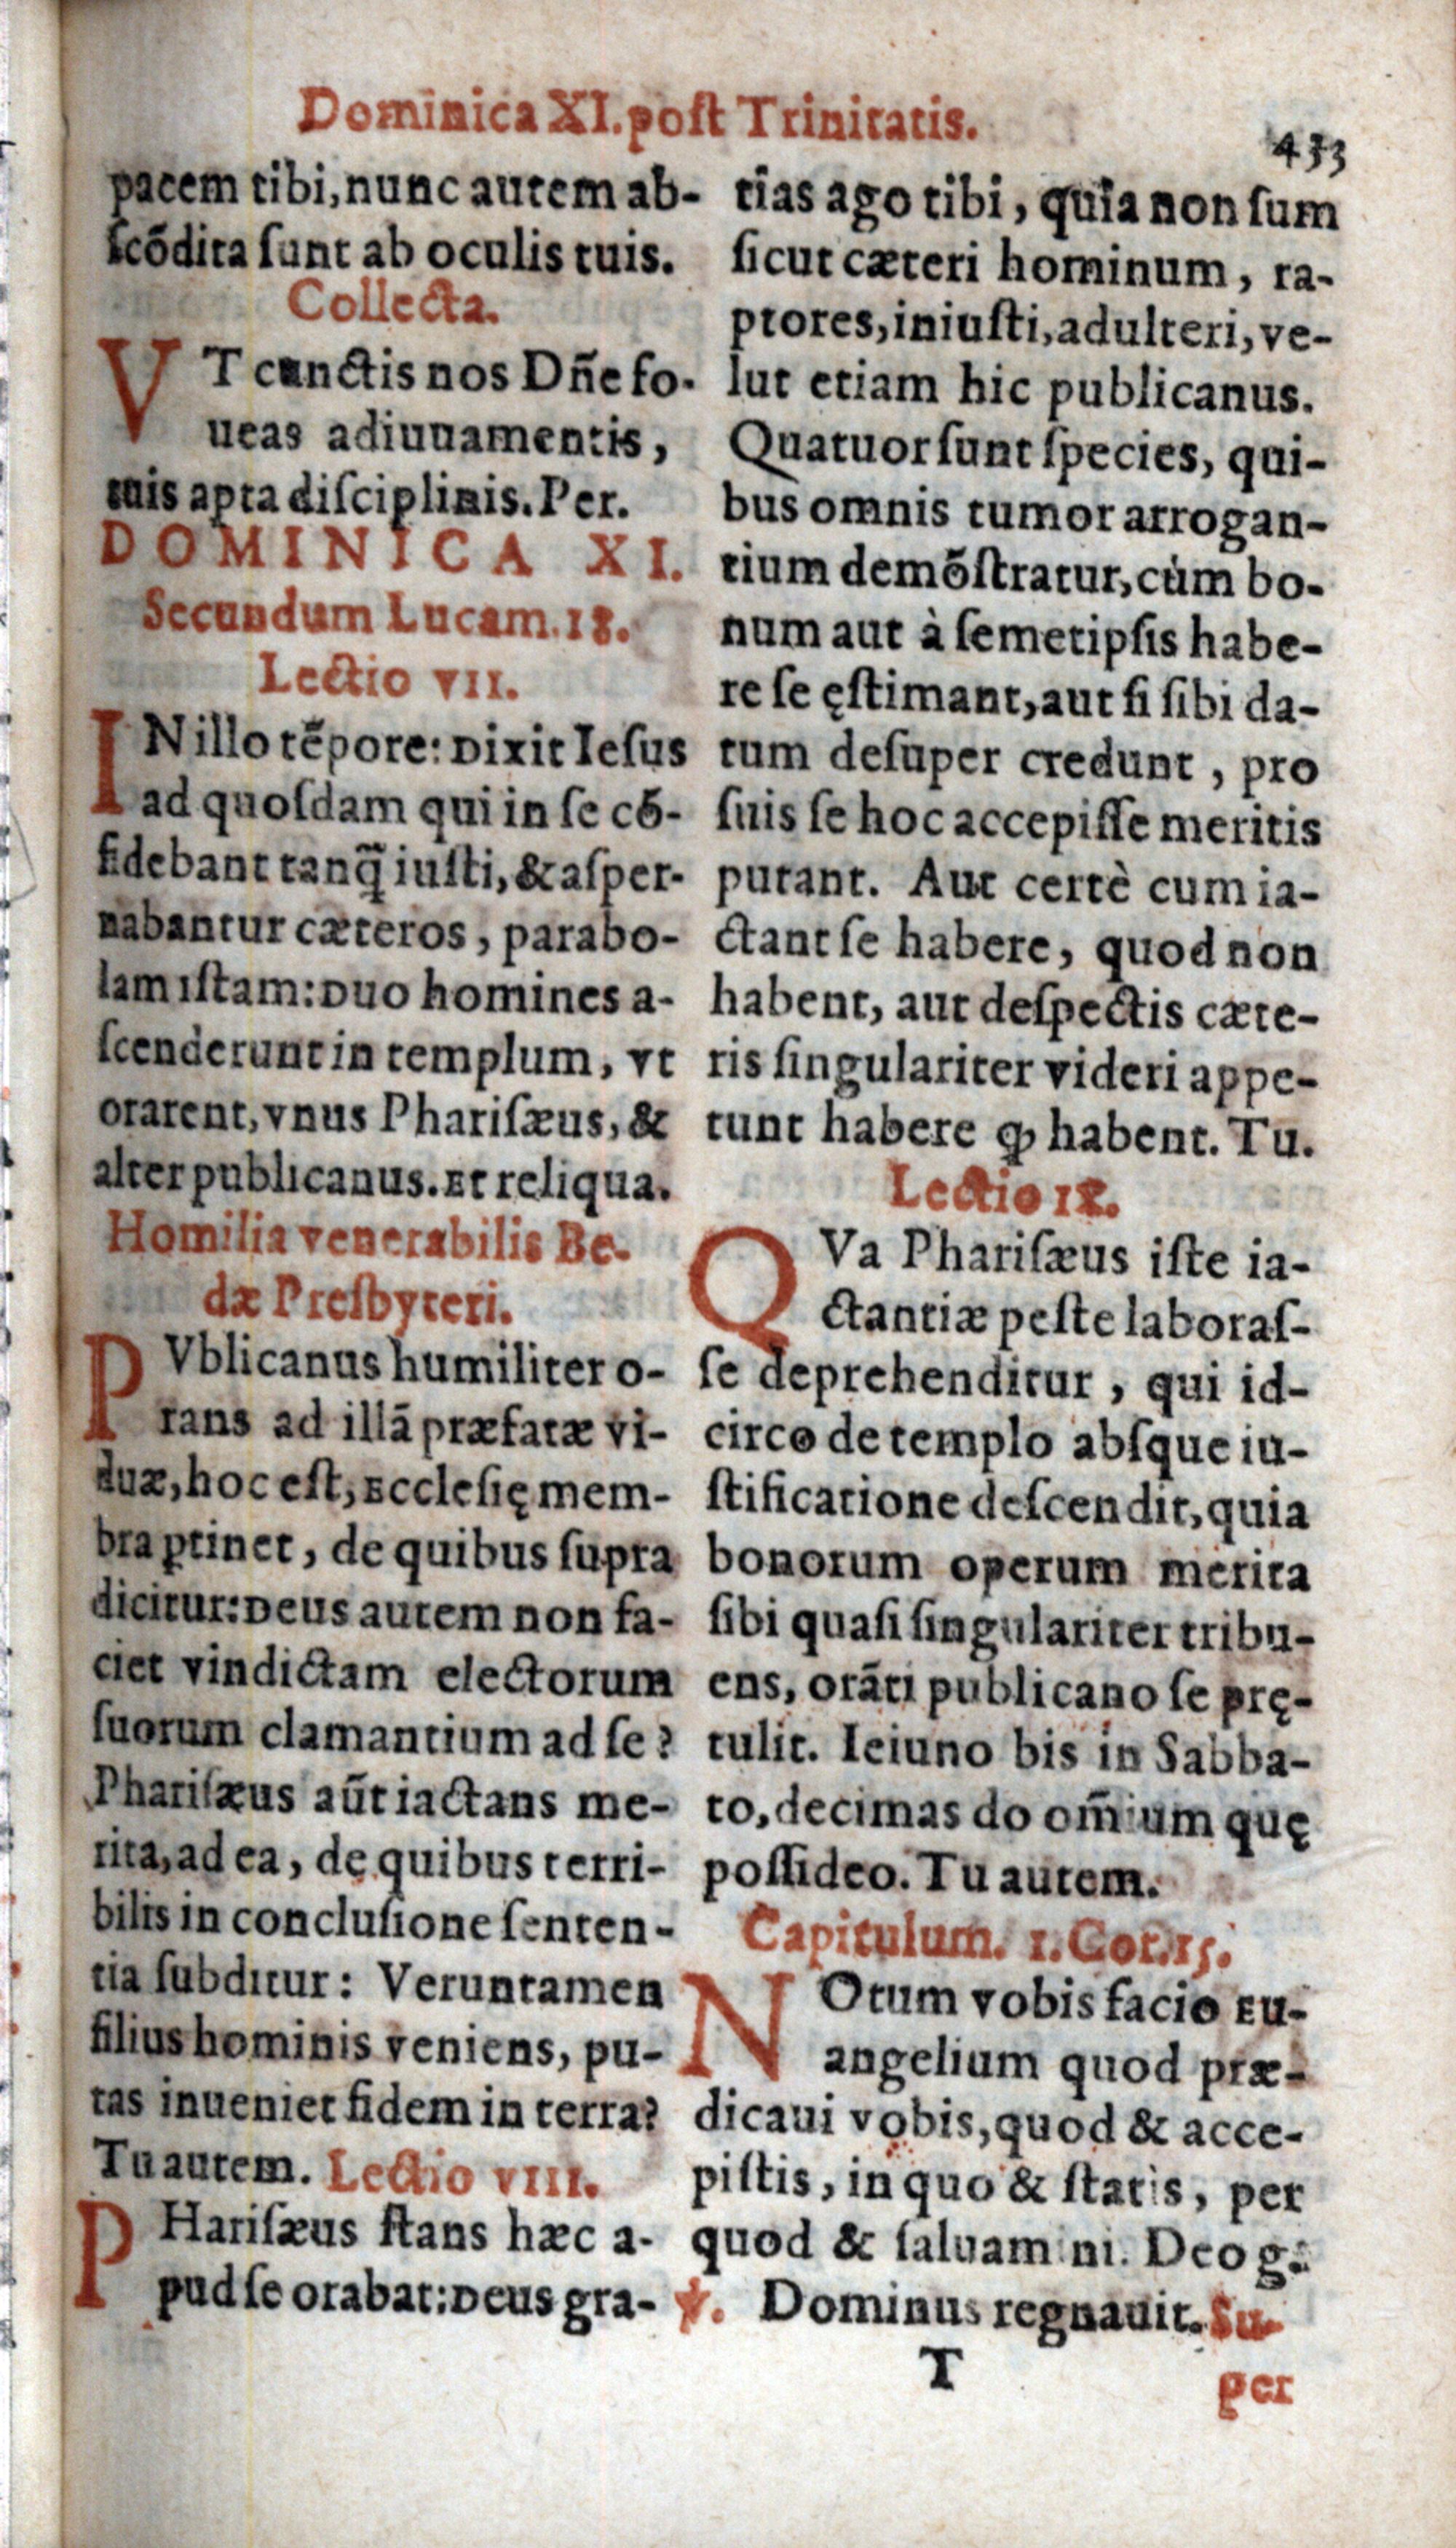 Dominica XI. poſt Trinitatis.
433
pacem tibi, nunc autem ab-
ſcõdita ſunt ab oculis tuis.
Collecta.
VT cunctis nos Dñe fo-
ueas adiuuamentis,
tuis apta diſciplinis. Per.
DOMINICA XI.
Secundum Lucam. 18.
Lectio VII.
IN illo tẽpore: Dixit Ieſus
ad quoſdam qui in ſe cõ-
fidebant tanq̃ iuſti, & aſper-
nabantur cæteros, parabo-
lam iſtam: Duo homines a-
ſcenderunt in templum, vt
orarent, vnus Phariſæus, &
alter publicanus. Et reliqua.
Homilia venerabilis Be-
dæ Preſbyteri.
PVblicanus humiliter o-
rans ad illã præfatæ vi-
duæ, hoc eſt, Eccleſię mem-
bra ꝑtinet, de quibus ſupra
dicitur: Deus autem non fa-
ciet vindictam electorum
ſuorum clamantium ad ſe?
Phariſæus aũt iactans me-
rita, ad ea, de quibus terri-
bilis in concluſione ſenten-
tia ſubditur: Veruntamen
filius hominis veniens, pu-
tas inueniet fidem in terra?
Tu autem. Lectio VIII.
PHariſæus ſtans hæc a-
pud ſe orabat: Deus gra-
tias ago tibi, quia non ſum
ſicut cæteri hominum, ra-
ptores, iniuſti, adulteri, ve-
lut etiam hic publicanus.
Quatuor ſunt ſpecies, qui-
bus omnis tumor arrogan-
tium demõſtratur, cùm bo-
num aut à ſemetipſis habe-
re ſe ęſtimant, aut ſi ſibi da-
tum deſuper credunt, pro
ſuis ſe hoc accepiſſe meritis
putant. Aut certè cum ia-
ctant ſe habere, quod non
habent, aut deſpectis cæte-
ris ſingulariter videri appe-
tunt habere ꝙ habent. Tu.
Lectio IX.
QVa Phariſæus iſte ia-
ctantiæ peſte laboraſ-
ſe deprehenditur, qui id-
circo de templo abſque iu-
ſtificatione deſcendit, quia
bonorum operum merita
ſibi quaſi ſingulariter tribu-
ens, orãti publicano ſe prę-
tulit. Ieiuno bis in Sabba-
to, decimas do om̃ium quę
poſſideo. Tu autem.
Capitulum. 1. Cor. 15.
NOtum vobis facio Eu-
angelium quod præ-
dicaui vobis, quod & acce-
piſtis, in quo & ſtatis, per
quod & ſaluamini. Deo g.
℣. Dominus regnauit. Su-
T
per